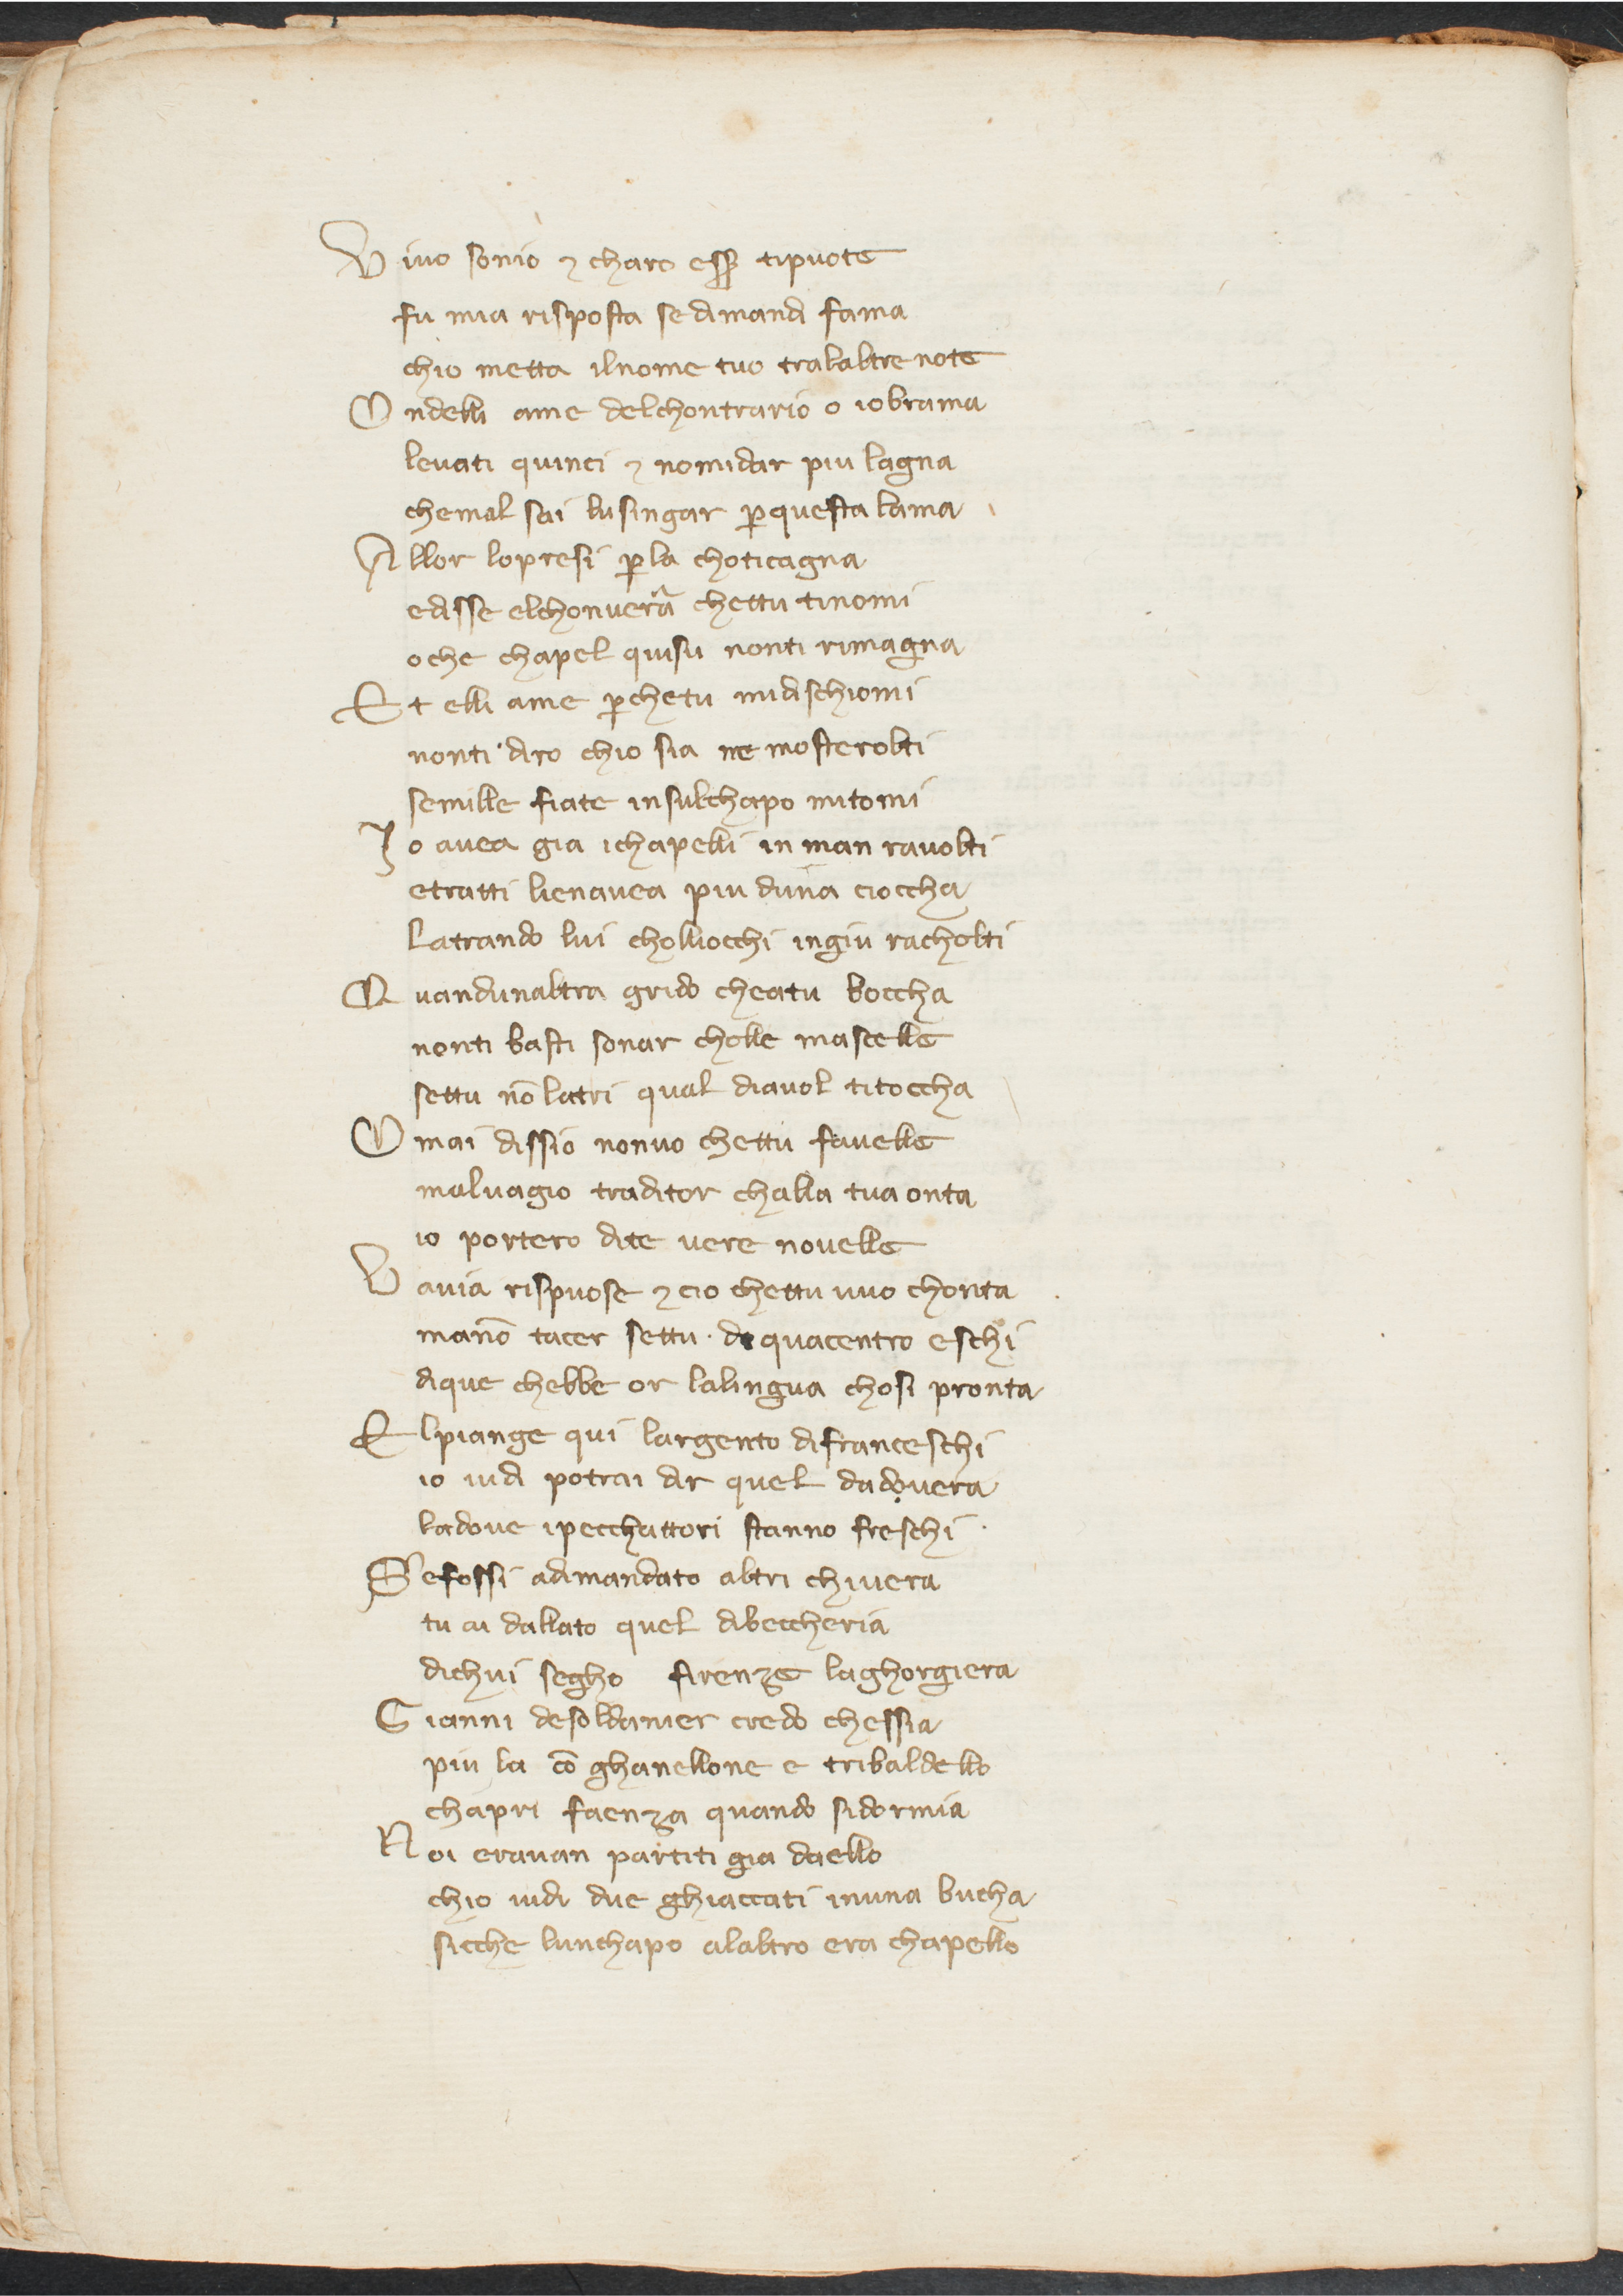 Viuo sonio ⁊ charo ess̶ tipuote
fu mia risposta se dimandi fama
chio metta ilnome tuo tralaltre note
Ondelli ame delchontrario o iobrama
leuati quinci ⁊ nomidar piu lagna
chemal sai lusingar ꝑquesta lama
Allor lopresi ꝑla choticagna
edisse elchonuerra chettu tinomi
oche chapel quisu nonti rimagna
Et elli ame ꝑchetu midischiomi
nonti diro chio sia ne mosterolti
semille fiate insulchapo mitomi
Io auea gia ichapelli in man rauolti
etratti lienauea piu duna cioccha
Latrando lui cholliocchi ingiu racholti
Quandunaltra grido cheatu boccha
nonti basti sonar cholle mascelle
settu nō latri qual diauol titoccha
Omai dissio nonuo chettu fauelle
maluagio traditor challa tua onta
io portero dite uere nouelle
Vauia rispuose ⁊ cio chettu uuo chonta
manō tacer settu di quacentro eschi
dique chebbe or lalingua chosi pronta
Elpiange qui largento difranceschi
io uidi potrai dir quel dadouera
ladoue ipecchattori stanno freschi
Sefossi adimandato altri chiuera
tu ai dallato quel dibeccheria
dichui segho firenze laghorgiera
Gianni desoldanier credo chessia
piu la cō ghanellone e tribaldello
chapri faenza quando sidormia
Noi erauan partiti gia daello
chio uidi due ghiaccati inuna bucha
sicche lunchapo alaltro era chapello